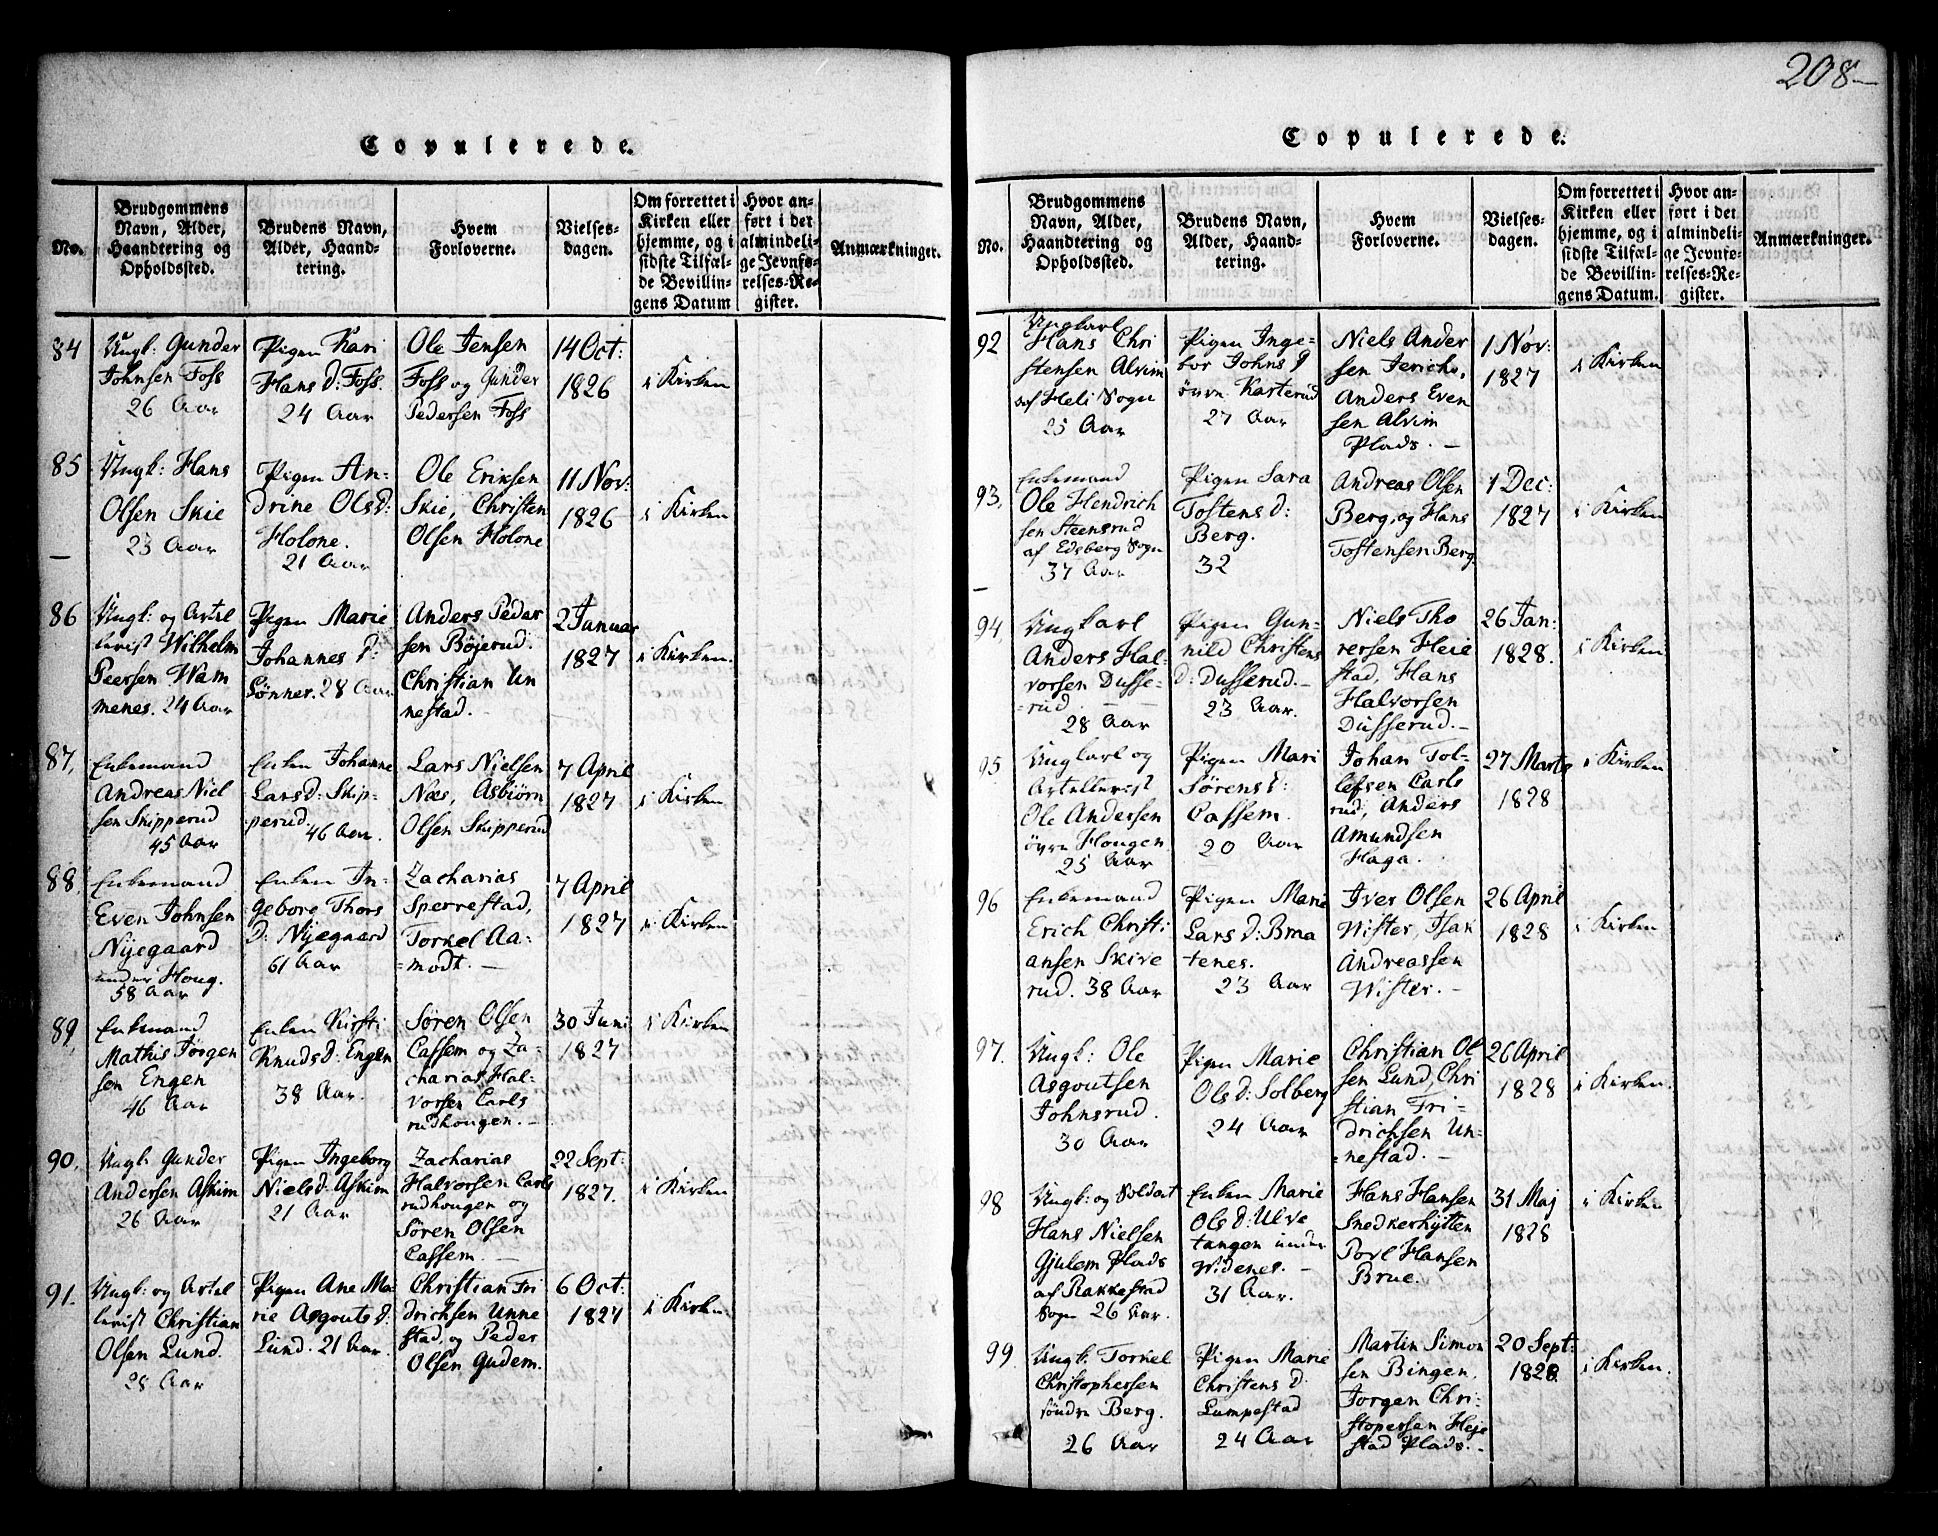 208
Copulerede.
No.
Brudgommens
Navn, Alder,
Haandtering og
Opholdssted.
Brudens Navn,
Alder, Haand-
tering.
Hvem
Forloverne.
Vielses-
dagen.
Om forrettet i
Kirken eller
hjemme, og i
sidste Tilfæl-
de Bevillin-
gens Datum
Hvor an-
ført i det
almindeli-
ge Jevnfø-
relses-Re-
gister.
Anmærkninger.
84
Ungk: Gunder
Johnsen Foss
26 Aar
Pigen Kari
Hans d: Foss.
24 Aar
Ole Jensen
Foss og Gunder
Pedersen Foss
14 Oct:
1826
i Kirken
85
Ungk: Hans
Olsen Skie
23 Aar
Pigen An-
drine Olsd:
Holone.
21 Aar
Ole Eriksen
Skie, Christen
Olsen Holone
11 Nov:
1826
i Kirken
86
Ungk: og Artel
lerist Wilhelm
Peersen Wam
menes. 24 Aar
Pigen Marie
Johannes d:
Sønner. 28 Aar
Anders Peder
sen Bøjerud.
Christian Un
nestad.
2 Januar
1827
i Kirken.
87,
Enkemand
Andreas Niel
sen Skipperud
45 Aar
Enken Johanne
Larsd: Skip-
perud.
46 Aar.
Lars Nielsen
Næs, Asbiørn
Olsen Skipperud
7 April
1827
i Kirken
88,
Enkemand
Even Johnsen
Nyegaard
under Houg.
58 Aar
Enken In-
geborg Thors
d: Nyegaard
61 Aar
Zacharias
Sperrestad,
Torkel Aa-
=modt.
7 April
1827
i Kirken
89,
Enkemand
Mathis Jørgen
sen Engen
46 Aar
Enken Kirsti
Knudsd: Engen
38 Aar.
Søren Olsen
Cassem og Za-
charias Hal-
vorsen Carls
rudhougen.
30 Juni
1827
i Kirken
90,
Ungk: Gunder
Andersen Askim
26 Aar
Pigen Ingeborg
Nielsd: Askim
21 Aar
Zacharias
Halvorsen Carls
rudhougen og
Søren Olsen
Cassem.
22 Sept:
1827.
i Kirken
91.
Ungk: og Artel
lerist Christian
Olsen Lund.
28 Aar
Pigen Ane Ma
rie Asgouts d:
Lund. 21 Aar
Christian Fri
drichsen Unne
stad, og Peder
Olsen Gudem.
6 Oct:
1827
i Kirken
Copulerede.
No.
Brudgommens
Navn, Alder,
Haandtering og
Opholdssted.
Brudens Navn,
Alder, Haand-
tering.
Hvem
Forloverne.
Vielses-
dagen.
Om forrettet i
Kirken eller
hjemme, og i
sidste Tilfæl-
de Bevillin-
gens Datum.
Hvor an-
ført i det
almindeli-
ge Jevnfø-
relses-Re-
gister.
Anmærkninger.
92
Ungkarl
Hans Chri
stensen Alvim
af Heli Sogn
25 Aar
Pigen Inge-
bor Johns d
øvre Karterud
27 Aar
Niels Ander
sen Jericho,
Anders Even
sen Alvim
Plads.
1 Nov:
1827
i Kirken
93,
Enkemand
Ole Hendrich
sen Steensrud
af Edsberg Sogn
37 Aar
Pigen Sara
Tostens d:
Berg.
32
Andreas Olsen
Berg, og Hans
Tostensen Berg
1 Dec:
1827
i Kirken
94,
Ungkarl
Anders Hal-
vorsen Dusse-
=rud
28 Aar
Pigen Gun-
nild Christens
d: Dusserud.
23 Aar.
Niels Tho
rersen Heie
stad, Hans
Halvorsen
Dusserud.
26 Jan:
1828.
i Kirken
95
Ungkarl og
Artellerist
Ole Andersen
øvre Hougen
25 Aar
Pigen Mari
Sørensd:
Cassem.
20 Aar
Johan Tol-
lefsen Carls
rud, Anders
Amundsen
Haga.
27 Marts
1828
i Kirken
96
Enkemand
Erich Christi
ansen Skive
rud. 38 Aar
Pigen Marie
Lars d: Braa
-tenes.
23 Aar
Iver Olsen
Wister, Isak
Andreassen
Wister.
26 April
1828
i Kirken
97.
Ungk: Ole
Asgoutsen
Johnsrud.
30 Aar
Pigen Marie
Olsd: Solberg
24 Aar
Christian Ol
sen Lund, Chri
stian Fri-
drichsen Un=
=nestad.
26 April
1828
i Kirken.
98
Ungk: og Soldat
Hans Nielsen
Gjulem Plads
af Rakkestad
Sogn 26 Aar.
Enken Marie
Ols d: Ulve
tangen under
Widenes.
31 Aar.
Hans Hansen
Snedkerhytten
Povl Hansen
Brue.
31 Maj
1828
i Kirken
99.
Ungk: Torkel
Christophersen
søndre Berg.
26 Aar
Pigen Marie
Christens d:
Lumpestad
24 Aar
Martin Simon
sen Bingen,
Jorgen Chri-
stopersen Heje
stad Plads.
20 Sept:
1828
i Kirken.